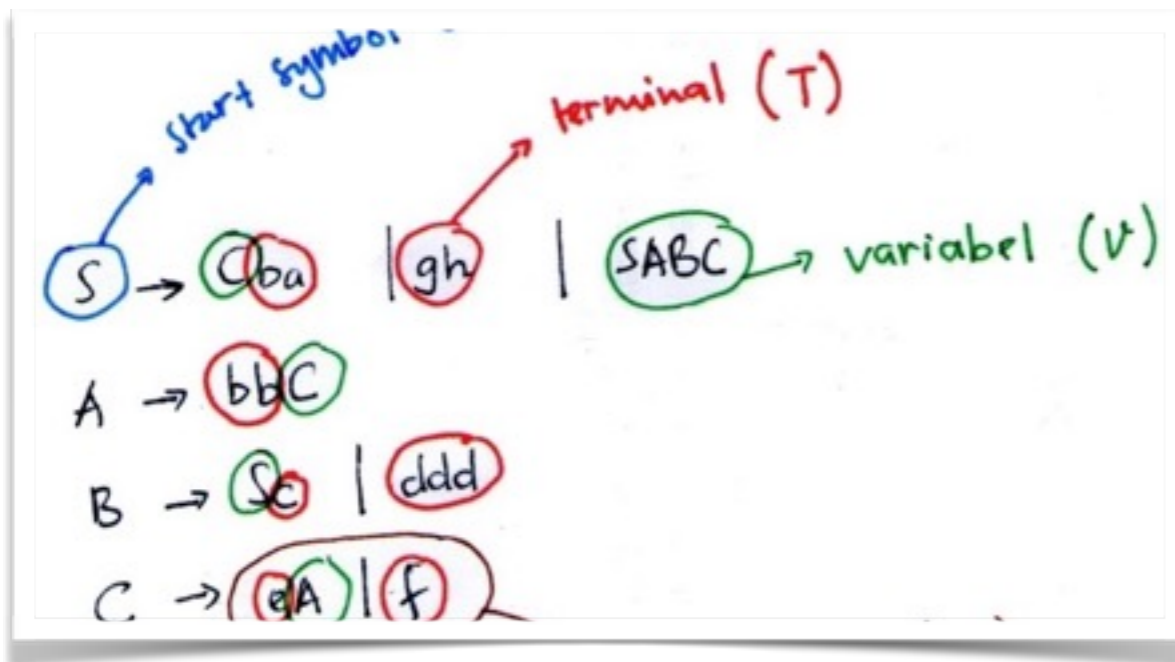 start symbol
terminal (T)
S → Cba | gh | SABC → variabel (V)
A → bbC
B → Sc | ddd
C → eA | f